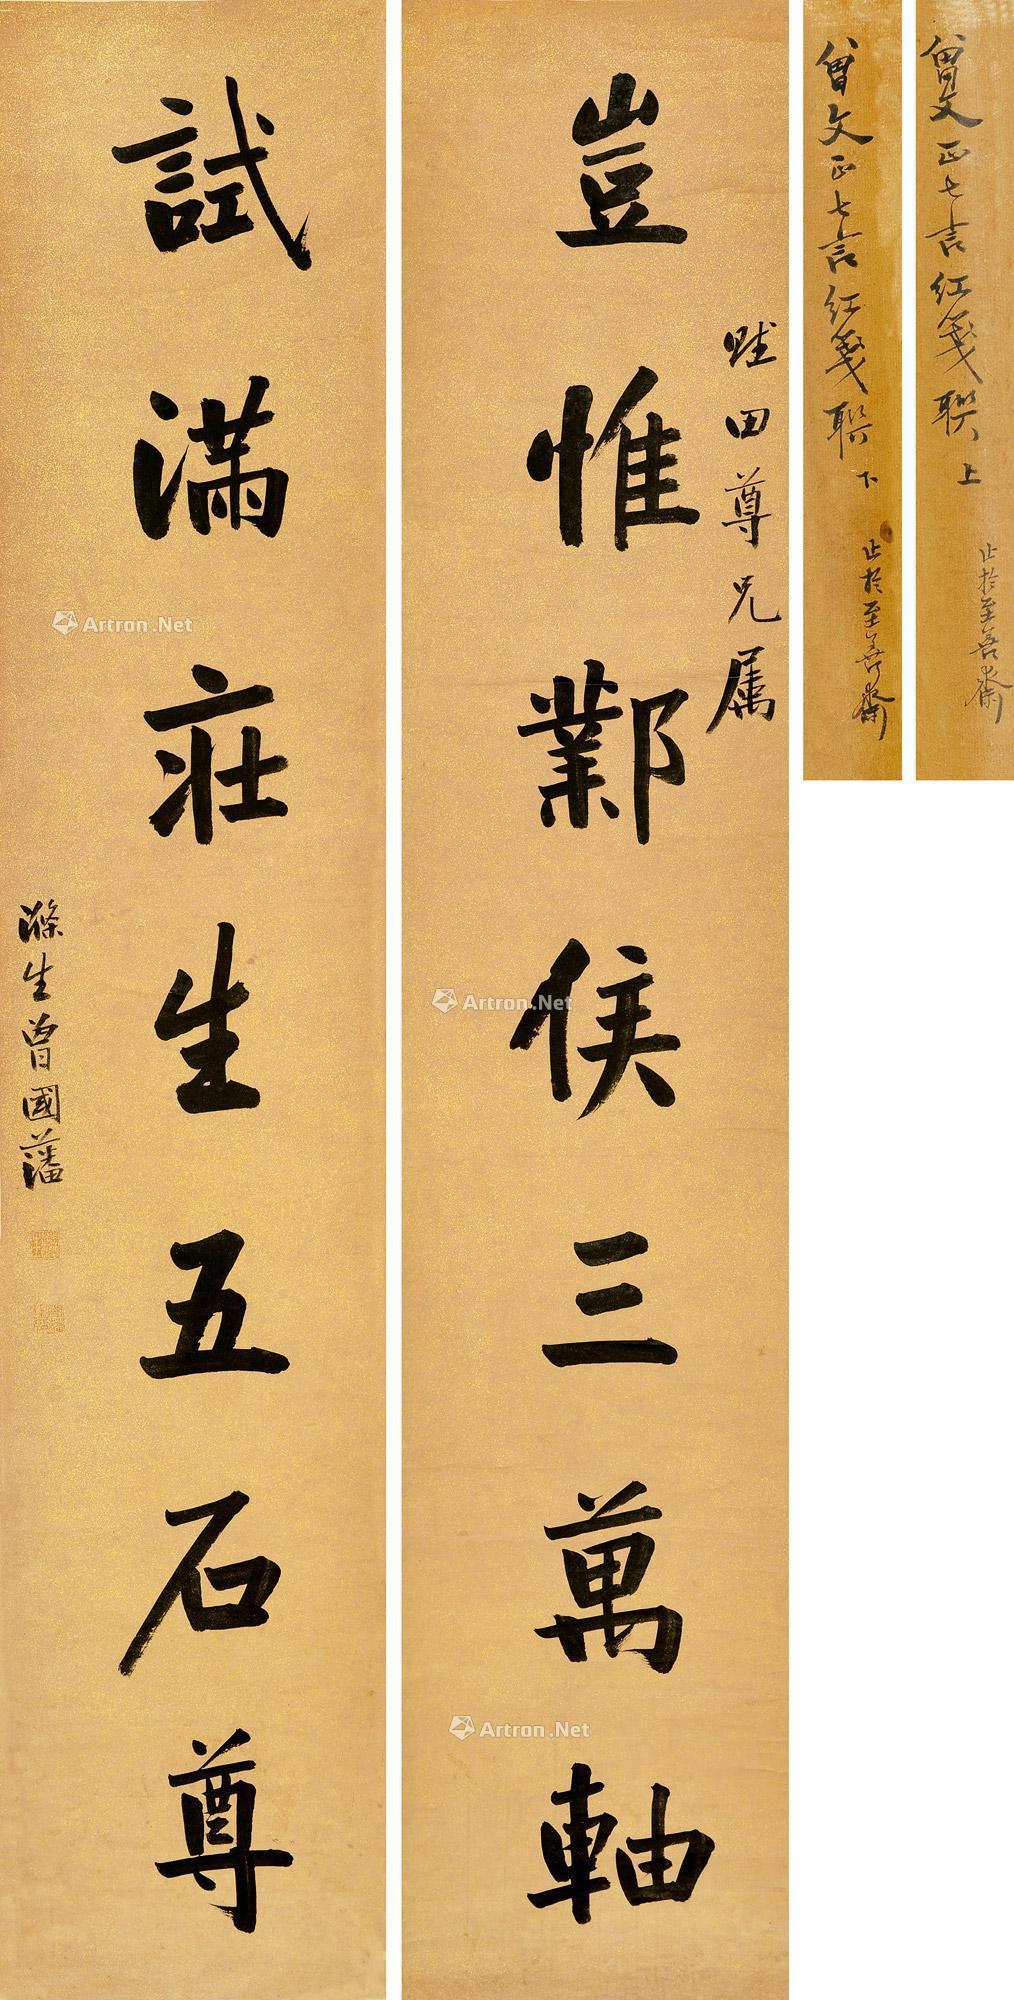 曾文正七言紅箋聯 上
止於至善齋
曾文正七言紅箋聯 下
止於至善齋
田尊兄属
豈惟鄴侯三萬軸
試滿莊生五石尊
滌生曾國藩
Artron.Net
Artron.Net
Artron.Net